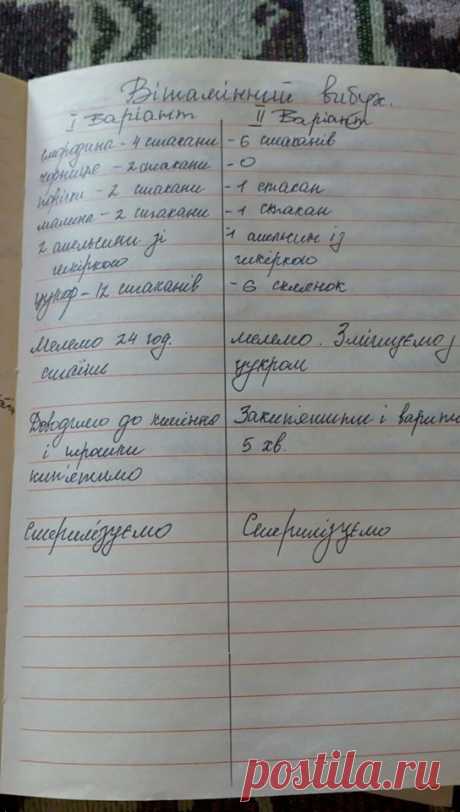 Вітамінний вибух.
I Варіант II Варіант
смородина - 4 стакани - 6 стаканів
чорниця - 2 стакани - 0
порічки - 2 стакани - 1 стакан
малина - 2 стакани - 1 стакан
2 апельсини зі - 1 апельсин із
шкіркою шкіркою
цукор - 12 стаканів - 6 склянок
Мелемо 24 год. мелемо. Змішуємо з
стоїть цукром
Доводимо до кипіння Закип'ятити і варити
і трошки 5 хв.
кип'ятимо
Стерилізуємо Стерилізуємо
postila.ru